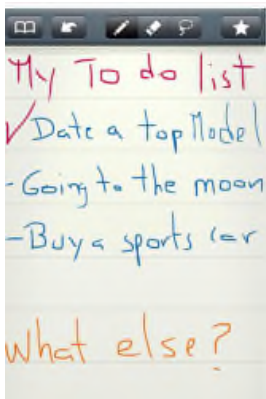 My To do list
✓Date a top Model
-Going to the moon
-Buy a sports car
What else?